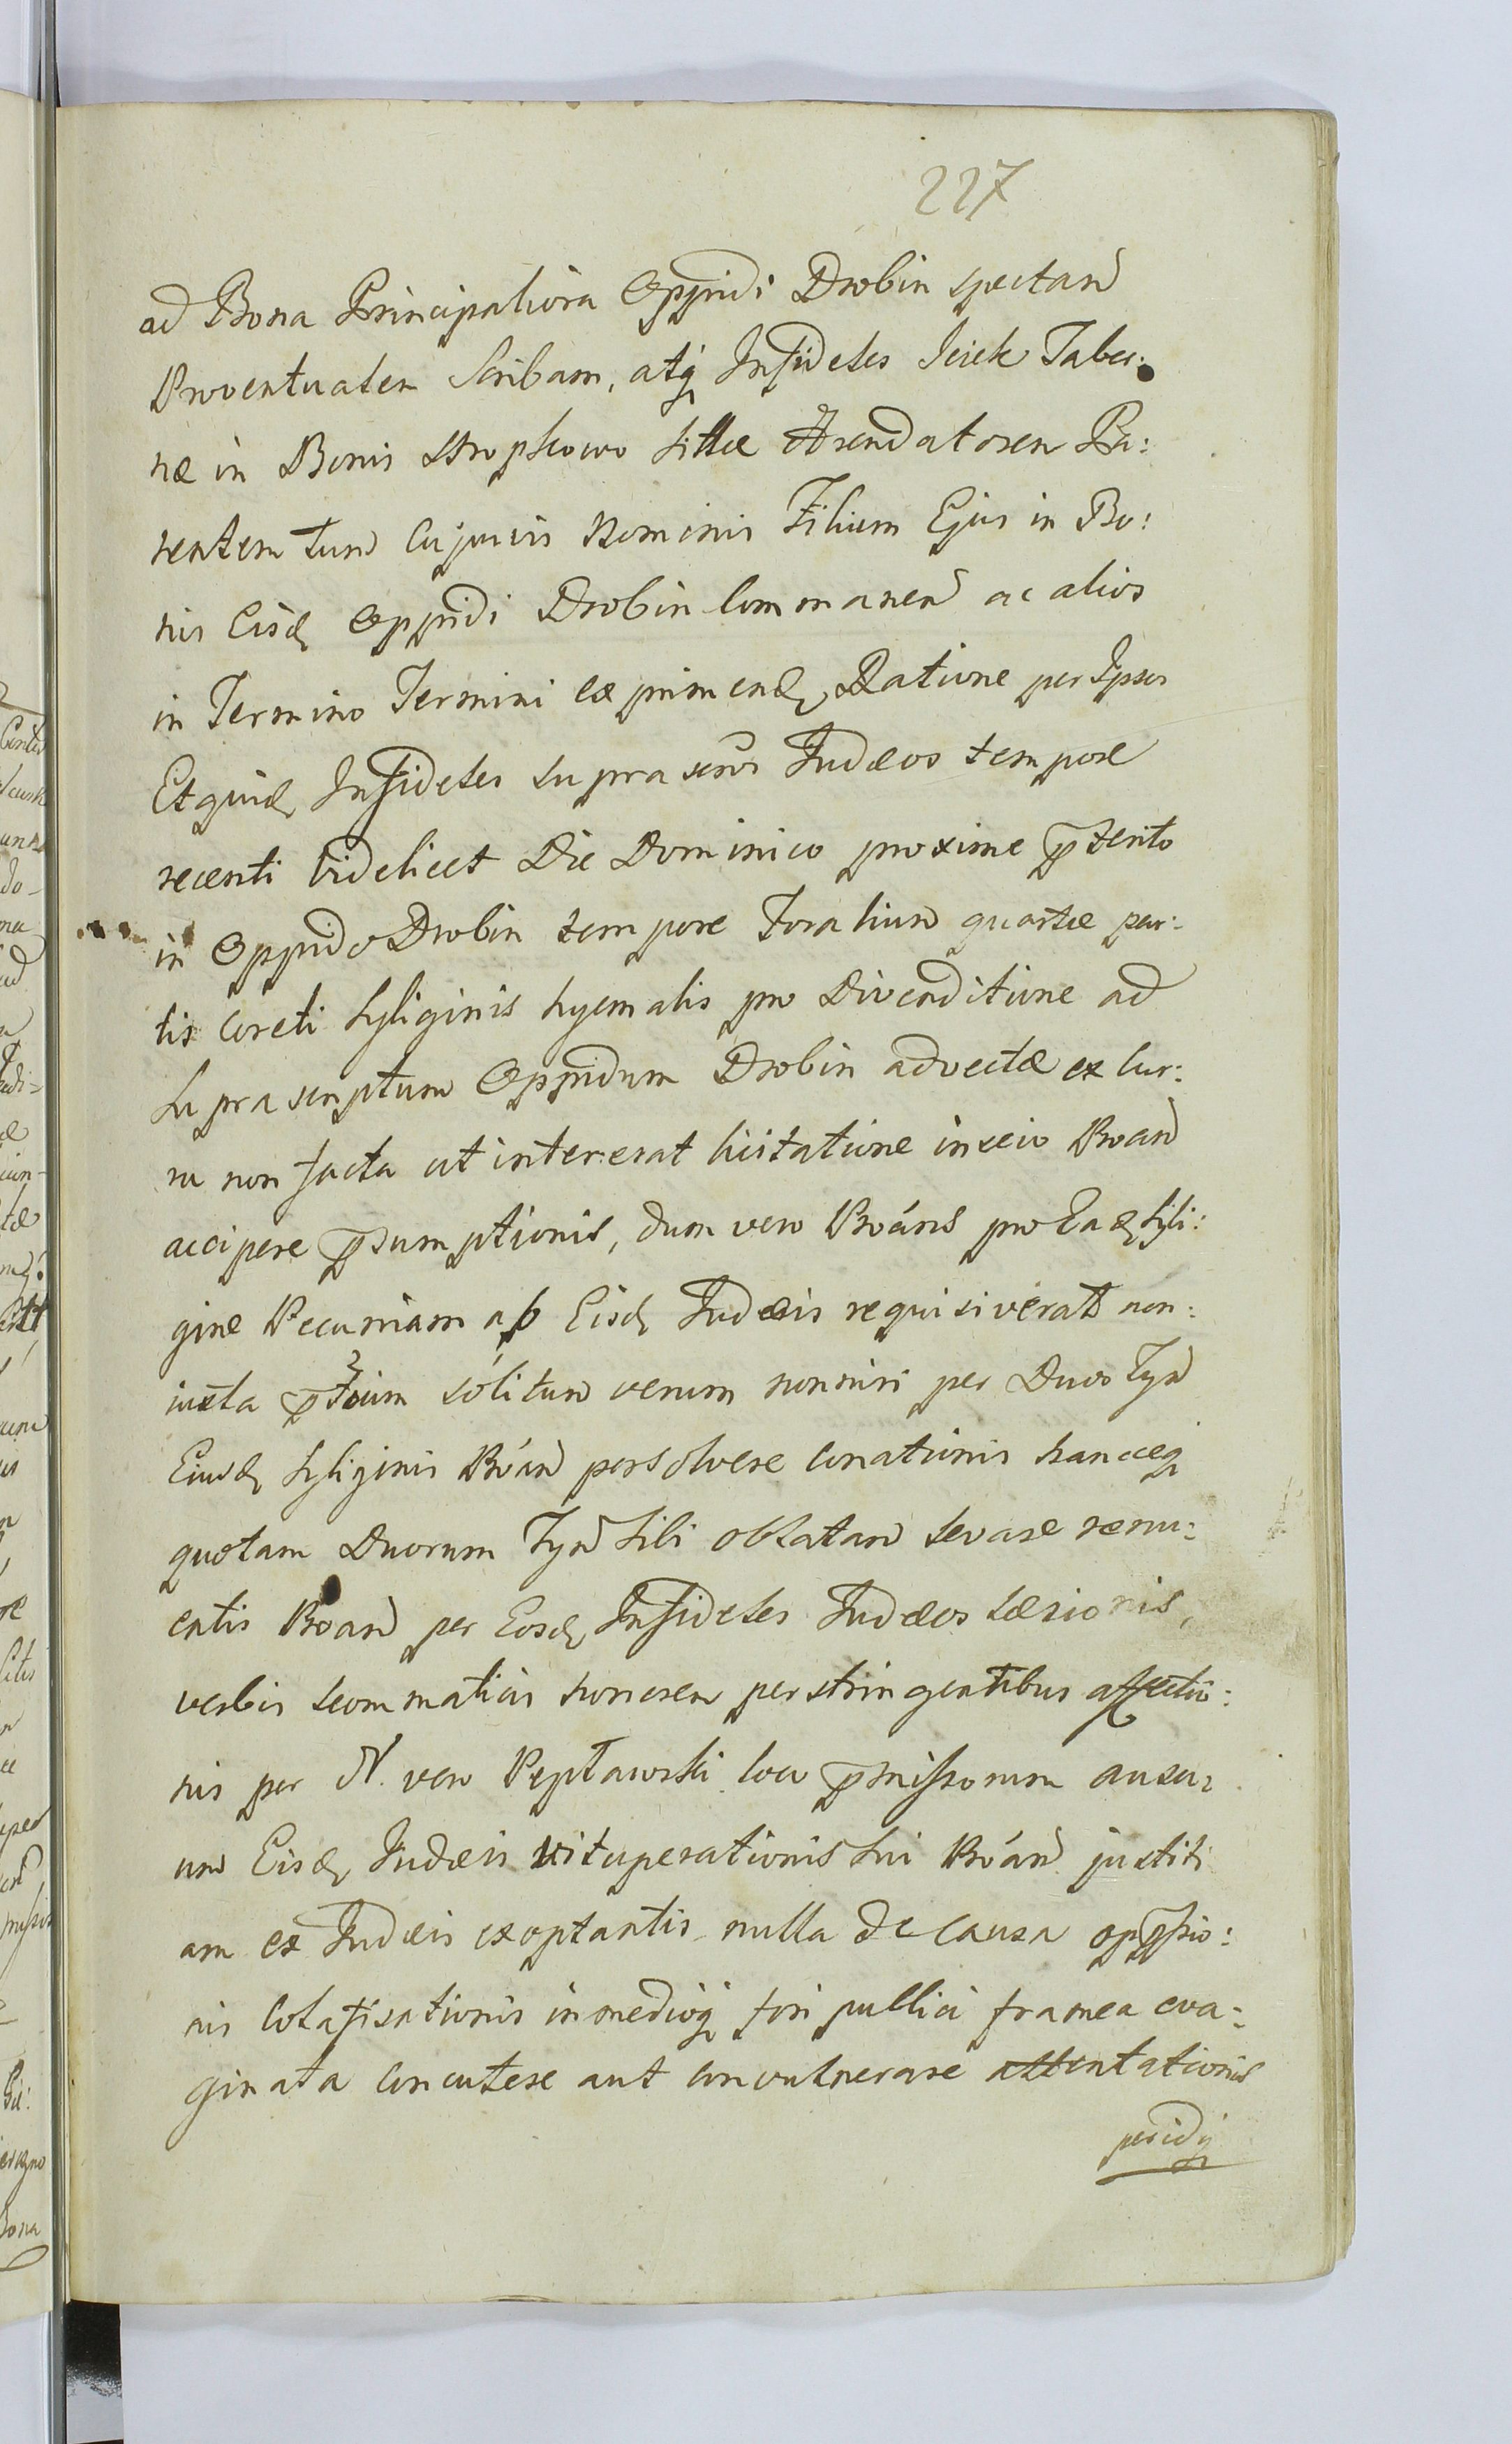 227
ad Bona Principaliora Oppidi Drobin spectan
Proventualem Scribam, atq Infideles Iciek Taber:
næ in Bonis Stropkowo sittæ Arendatorem Pa:
rentem tum cujusvis Nominis Filium Ejus in Bo:
nis Eisd Oppidi Drobin Commanen ac alios
in Termino Termini exprimend Ratione per Ipsos
Etquid Infideles supra scrôs Judæos tempore
recenti Videlicet Die Dominico proxime pterito
in Oppido Drobin tempore Foralium quartæ par:
tis Coreti Syliginis hyemalis pro Divenditione ad
Supra scriptum Oppidum Drobin advectæ ex Cur:
ru non facta ut intererat licitatione inscio Proan
accipere psumptionis, dum vero Proáns pro Ead Syli:
gine Pecuniam ab Eisd Judæis requisiverat non:
iuxta ptium sólitum verum nonnisi per Duos Tyn
Eiusd Syliginis Proán persolvere Conationis hancceq
quotam Duorum Tyn Sibi oblatam levare renu:
entis Proan per Eosd Infideles Judæos læsionis,
verbis scommaticis honorem perstringentibus affectio:
nis per N. vero Peptawski loco pmissorum ausu:
um Eisd Judæis vituperationis Sui Proán justiti
am ex Judæis exoptantis nulla de causa oppssio:
nis Colafisationis inmedioq fori publici framea eva:
ginata Concutere aut convulnerare attentationis